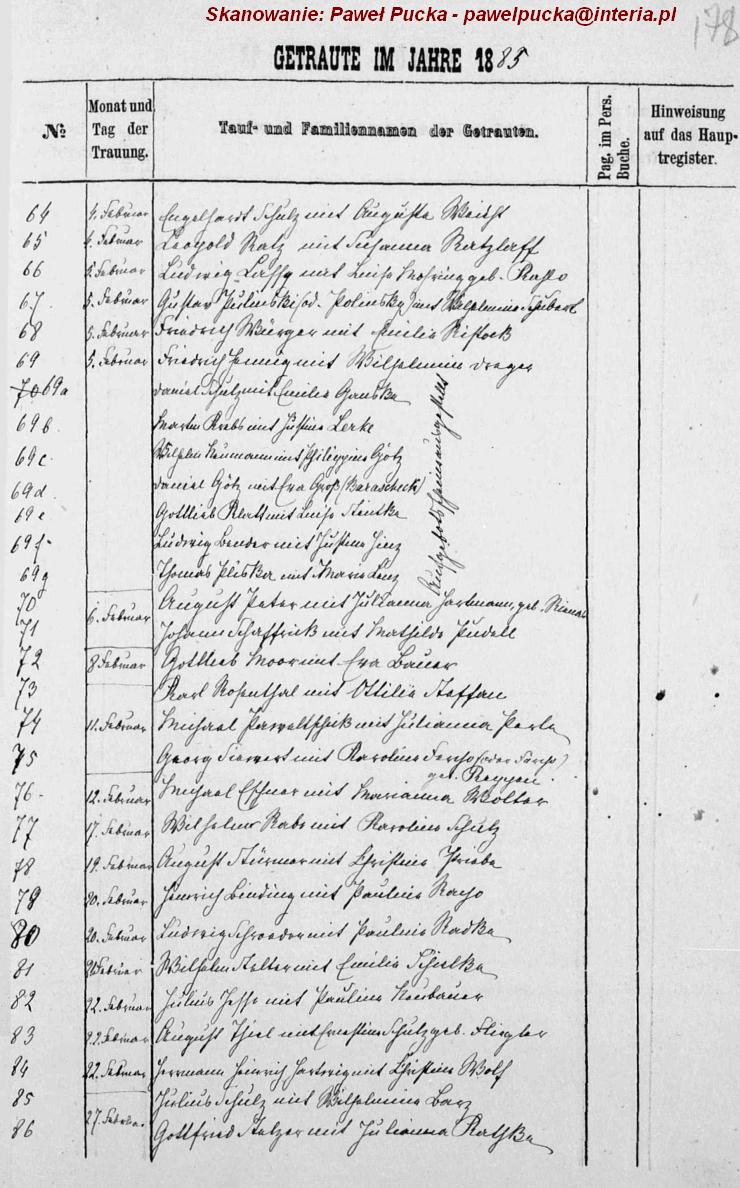 Skanowanie: Paweł Pucka - pawelpucka@interia.pl
178
GETRAUTE IM JAHRE 1885
№ Monat und Tag der Trauung. Tauf- und Familiennamen der Getrauten. Pag. im Pers. Buche. Hinweisung auf das Haupt-register.
64 4. Februar Engelhardt Schulz mit Augusta Weicht
65 4. Februar Leopold Ratz mit Susanna Ratzlaff
66 5. Februar Ludwig mit Luise geb.
67. 5. Februar Gustav Pulinski (od. Polinsky) mit Wilhelmine Schubert
68 5. Februar Friedrich Würger mit Emilie Ristock
69 5. Februar Friedrich Hennig mit Wilhelmine Dreger
70 69a Daniel Schulz mit Emilie Ganske
69b. Martin Krebs mit Justine Lerke
69c. Wilhelm Neumann mit Philippine Götz
69d. Daniel Götz mit Eva Groß (Barascheck)
69e Gottlieb Klatt mit Luise Stentke
69f. Ludwig Bender mit Justine Hinz
69g Thomas Pliska mit Marie Lenz
Aufgebotsschein ausgestellt
70 6. Februar August Peter mit Julianna Hartmann, geb.
71 Johann Schaffrick mit Mathilde Pudell
72 8. Februar Gottlieb Moor mit Eva Bauer
73 Karl Rosenthal mit Ottilie Steffan
74 11. Februar Michael Pawaltschik mit Julianna Perle
75 Georg Siewert mit Karoline Fercho (oder Farcho)
geb. Reppen.
76. 12. Februar Michael Essner mit Marianna Wolter
77 17. Februar Wilhelm Rabe mit Karoline Schulz
78 19. Februar August Stürmer mit Christine Thiede
79 20. Februar Heinrich Binding mit Pauline
80 20. Februar Ludwig Schroeder mit Pauline Radke
81 Februar Wilhelm Stelter mit Emilie Schielke
82 22. Februar Julius Jesse mit Pauline Neubauer
83 22. Februar August Thiel mit Ernestine Schulz geb. Fliegler
84 22. Februar Herrmann Heinrich Hartwig mit Christine Wolf
85 27. Februar Julius Schulz mit Wilhelmine Barz
86 Gottfried Stelzer mit Julianna Ratzke